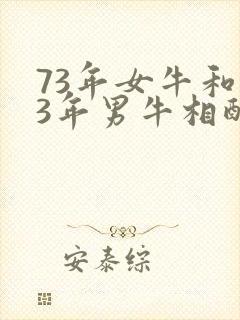 73年女牛和
3年男牛相
安泰综